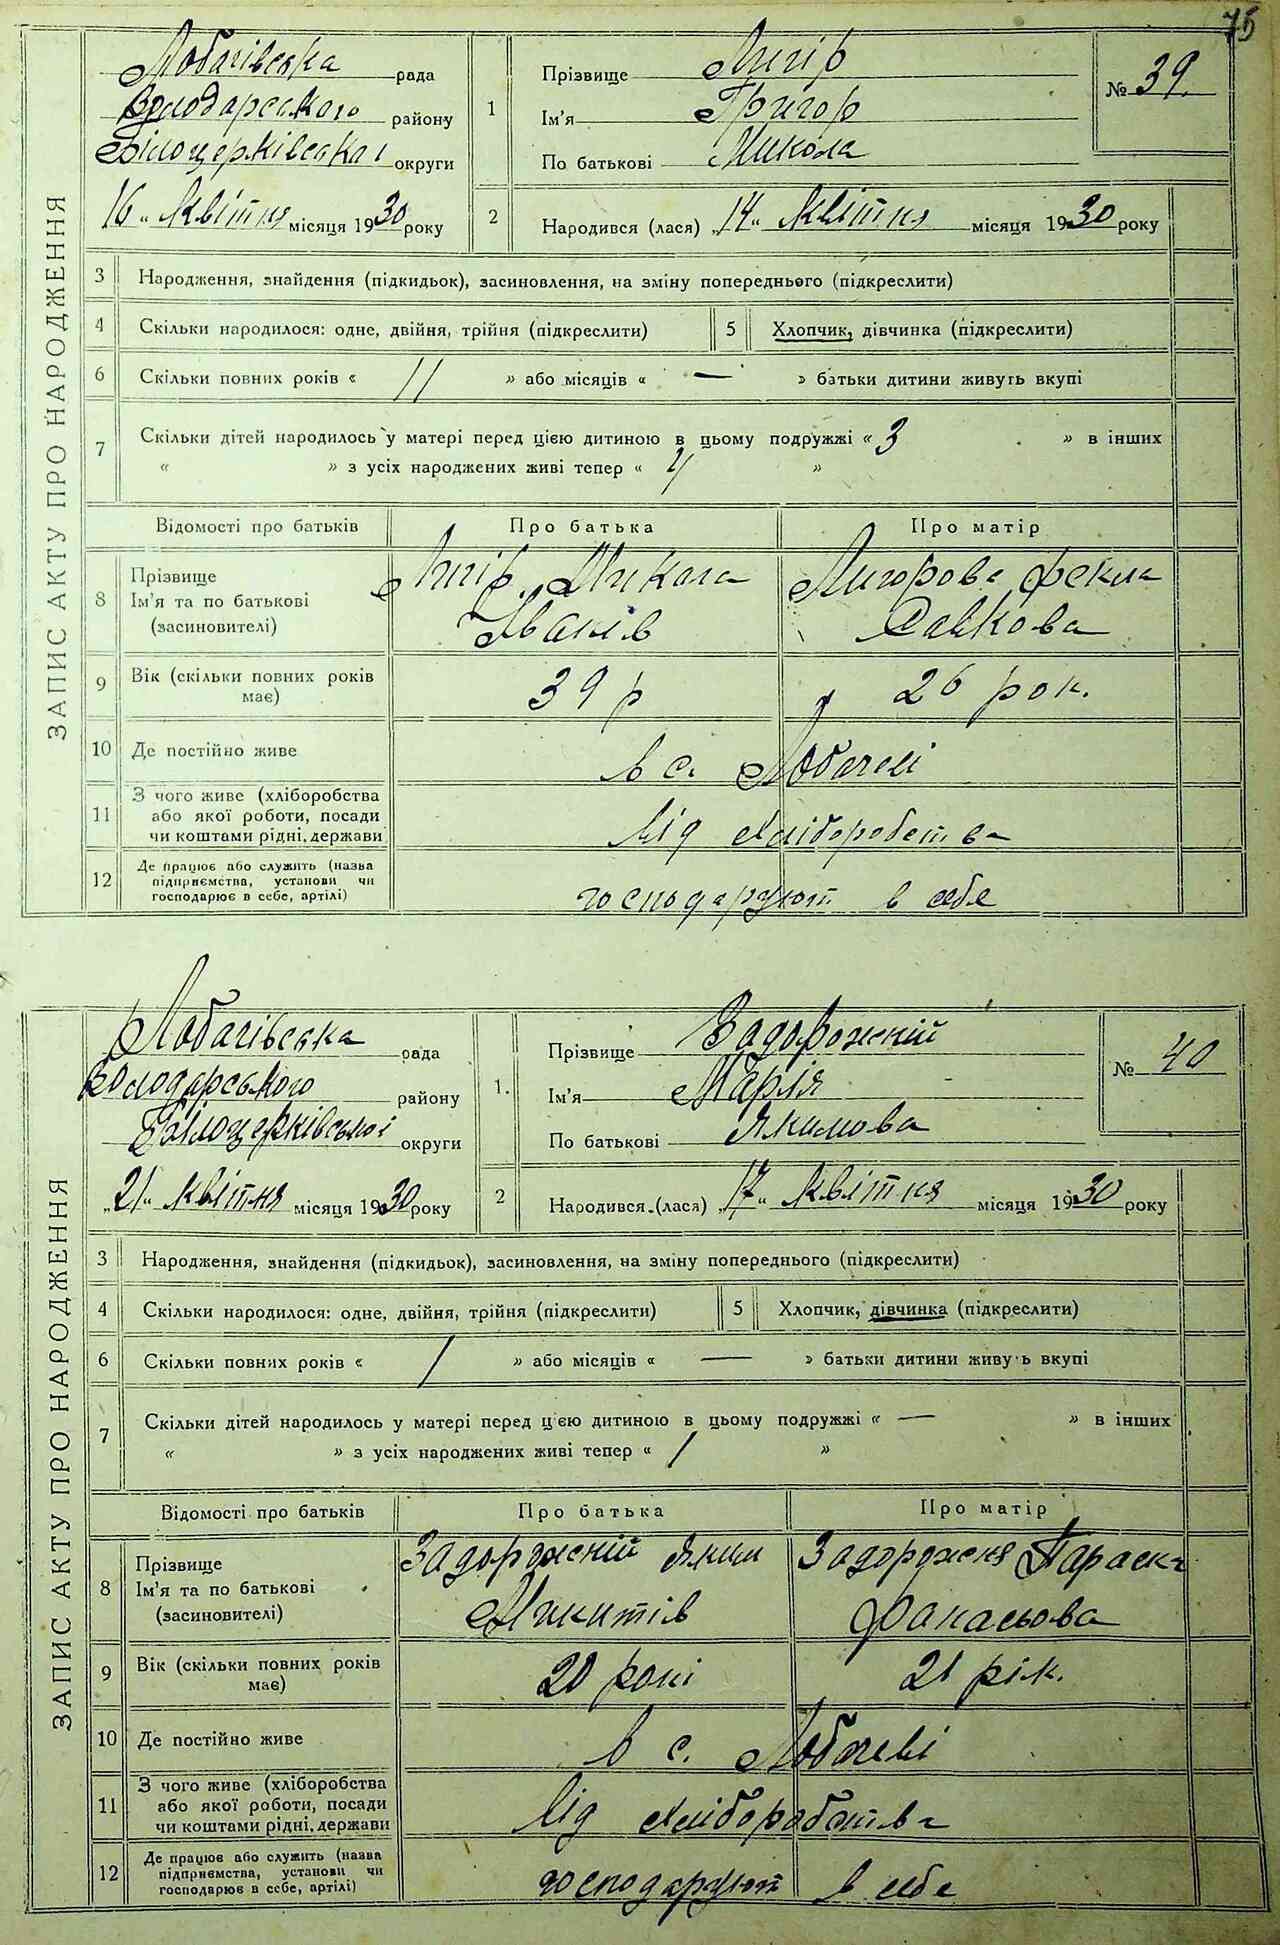 75
ЗАПИС АКТУ ПРО НАРОДЖЕННЯ
Лобачівська рада
Володарського району
Білоцерківської округи
16 " Квітня місяця 1930 року
1 Прізвище Лигір
Ім'я Григор
По батькові Микола
№ 39.
2 Народився (лася) „14" Квітня місяця 1930 року
3 Народження, знайдення (підкидьок), засиновлення, на зміну попереднього (підкреслити)
4 Скільки народилося: одне, двійня, трійня (підкреслити) 5 Хлопчик, дівчинка (підкреслити)
6 Скільки повних років « 11 » або місяців « — » батьки дитини живуть вкупі
7 Скільки дітей народилось у матері перед цією дитиною в цьому подружжі « 3 » в інших
« » з усіх народжених живі тепер « 4 »
Відомості про батьків Про батька Про матір
8 Прізвище Ім'я та по батькові (засиновителі) Лигір Микола Іванів Лигорова Фекла Савкова
9 Вік (скільки повних років має) 39 р 26 рок.
10 Де постійно живе в с. Лобачеві
11 З чого живе (хліборобства або якої роботи, посади чи коштами рідні, держави Від хліборобства
12 Де працює або служить (назва підприємства, установи чи господарює в себе, артілі) господарюют в себе
ЗАПИС АКТУ ПРО НАРОДЖЕННЯ
Лобачівська рада
Володарського району
Білоцерківської округи
„21" Квітня місяця 1930 року
1. Прізвище Задорожній
Ім'я Марія
По батькові Якимова
№ 40
2 Народився (лася) „17" Квітня місяця 1930 року
3 Народження, знайдення (підкидьок), засиновлення, на зміну попереднього (підкреслити)
4 Скільки народилося: одне, двійня, трійня (підкреслити) 5 Хлопчик, дівчинка (підкреслити)
6 Скільки повних років « 1 » або місяців « — » батьки дитини живуть вкупі
7 Скільки дітей народилось у матері перед цією дитиною в цьому подружжі « — » в інших
« » з усіх народжених живі тепер « 1 »
Відомості про батьків Про батька Про матір
8 Прізвище Ім'я та по батькові (засиновителі) Задорожній Яким Микитів Задорожня Параска Фанасьова
9 Вік (скільки повних років має) 20 рокі 21 рік.
10 Де постійно живе в с. Лобачеві
11 З чого живе (хліборобства або якої роботи, посади чи коштами рідні, держави Від хліборобства
12 Де працює або служить (назва підприємства, установи чи господарює в себе, артілі) господарюют в себе